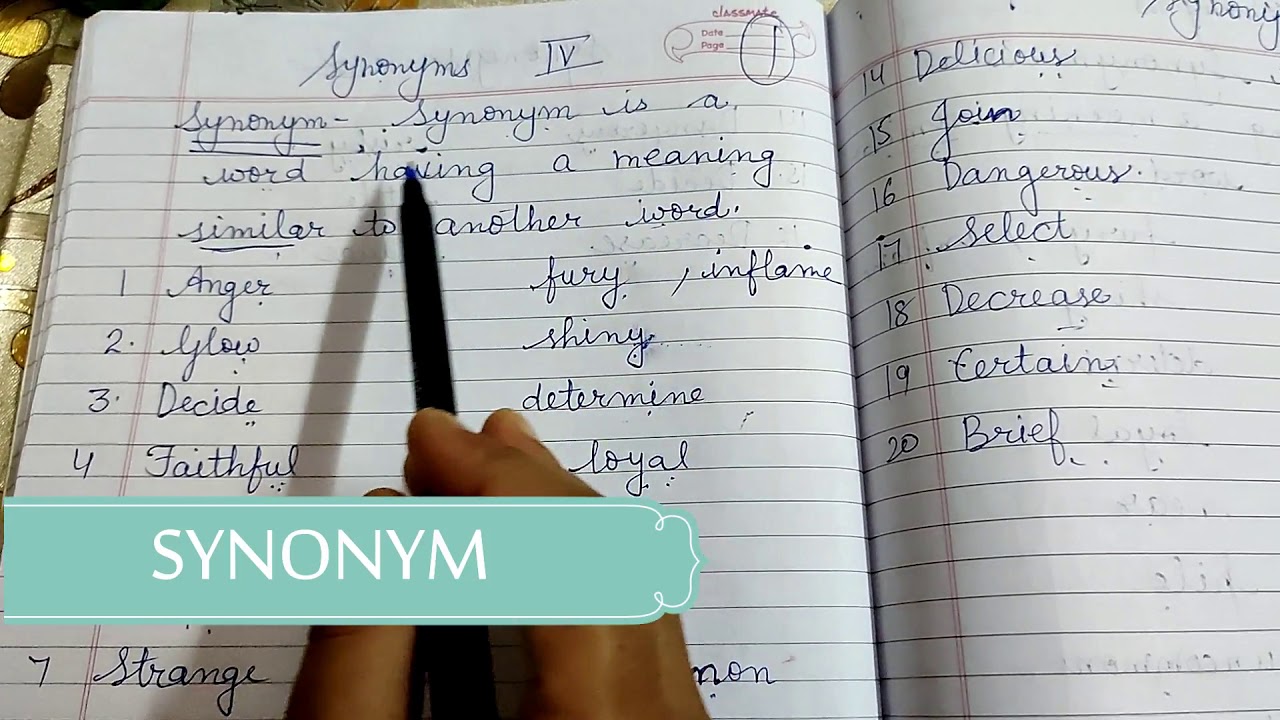 classmate
Date
Page
1
Synonyms IV
Synonym - Synonym is a
word having a meaning
similar to another word.
1 Anger fury, inflame
2. Glow shiny
3. Decide determine
4 Faithful loyal
SYNONYM
7 Strange mon
14 Delicious
15 Join
16 Dangerous.
17 Select
18 Decrease
19 Certain
20 Brief